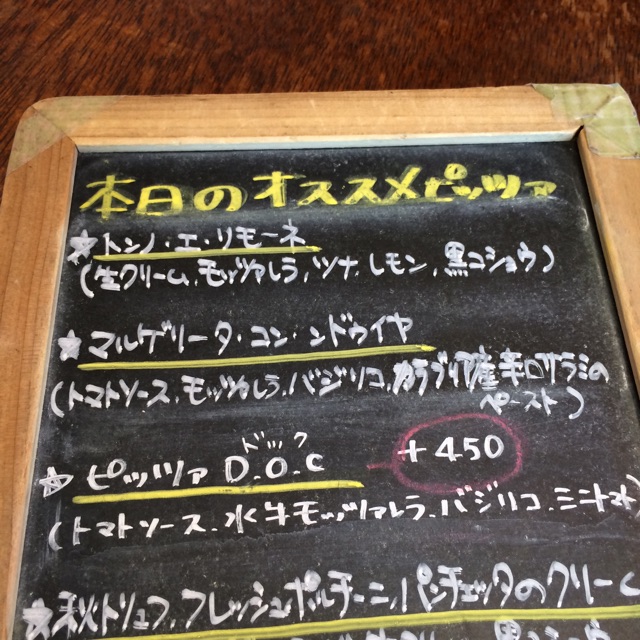 本日のオススメピッツァ
★トンノ・エ・リモーネ
(生クリーム、モッツァレラ、ツナ、レモン、黒コショウ)
★マルゲリータ・コン・ンドゥイヤ
(トマトソース、モッツァレラ、バジリコ、カラブリア産辛口サラミの
ペースト)
ドック
★ピッツァ D.O.C +450
(トマトソース、水牛モッツァレラ、バジリコ、ミニトマト)
★秋トリュフ、フレッシュポルチーニ、パンチェッタのクリーム
黒コショウ